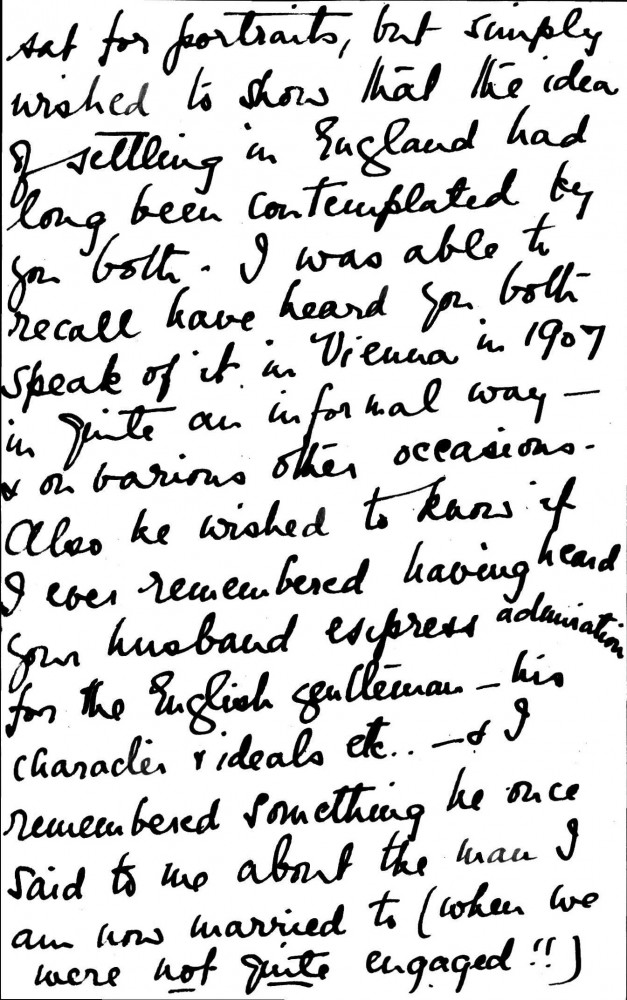 sat for portraits, but simply
wished to show that the idea
of settling in England had
long been contemplated by
you both. I was able to
recall have heard you both
speak of it in Vienna in 1907
in quite an informal way —
& on various other occasions.
Also he wished to know if
I ever remembered having heard
your husband express admiration
for the English gentleman — his
character & ideals etc.. — & I
remembered something he once
said to me about the man I
am now married to (when we
were not quite engaged!!)